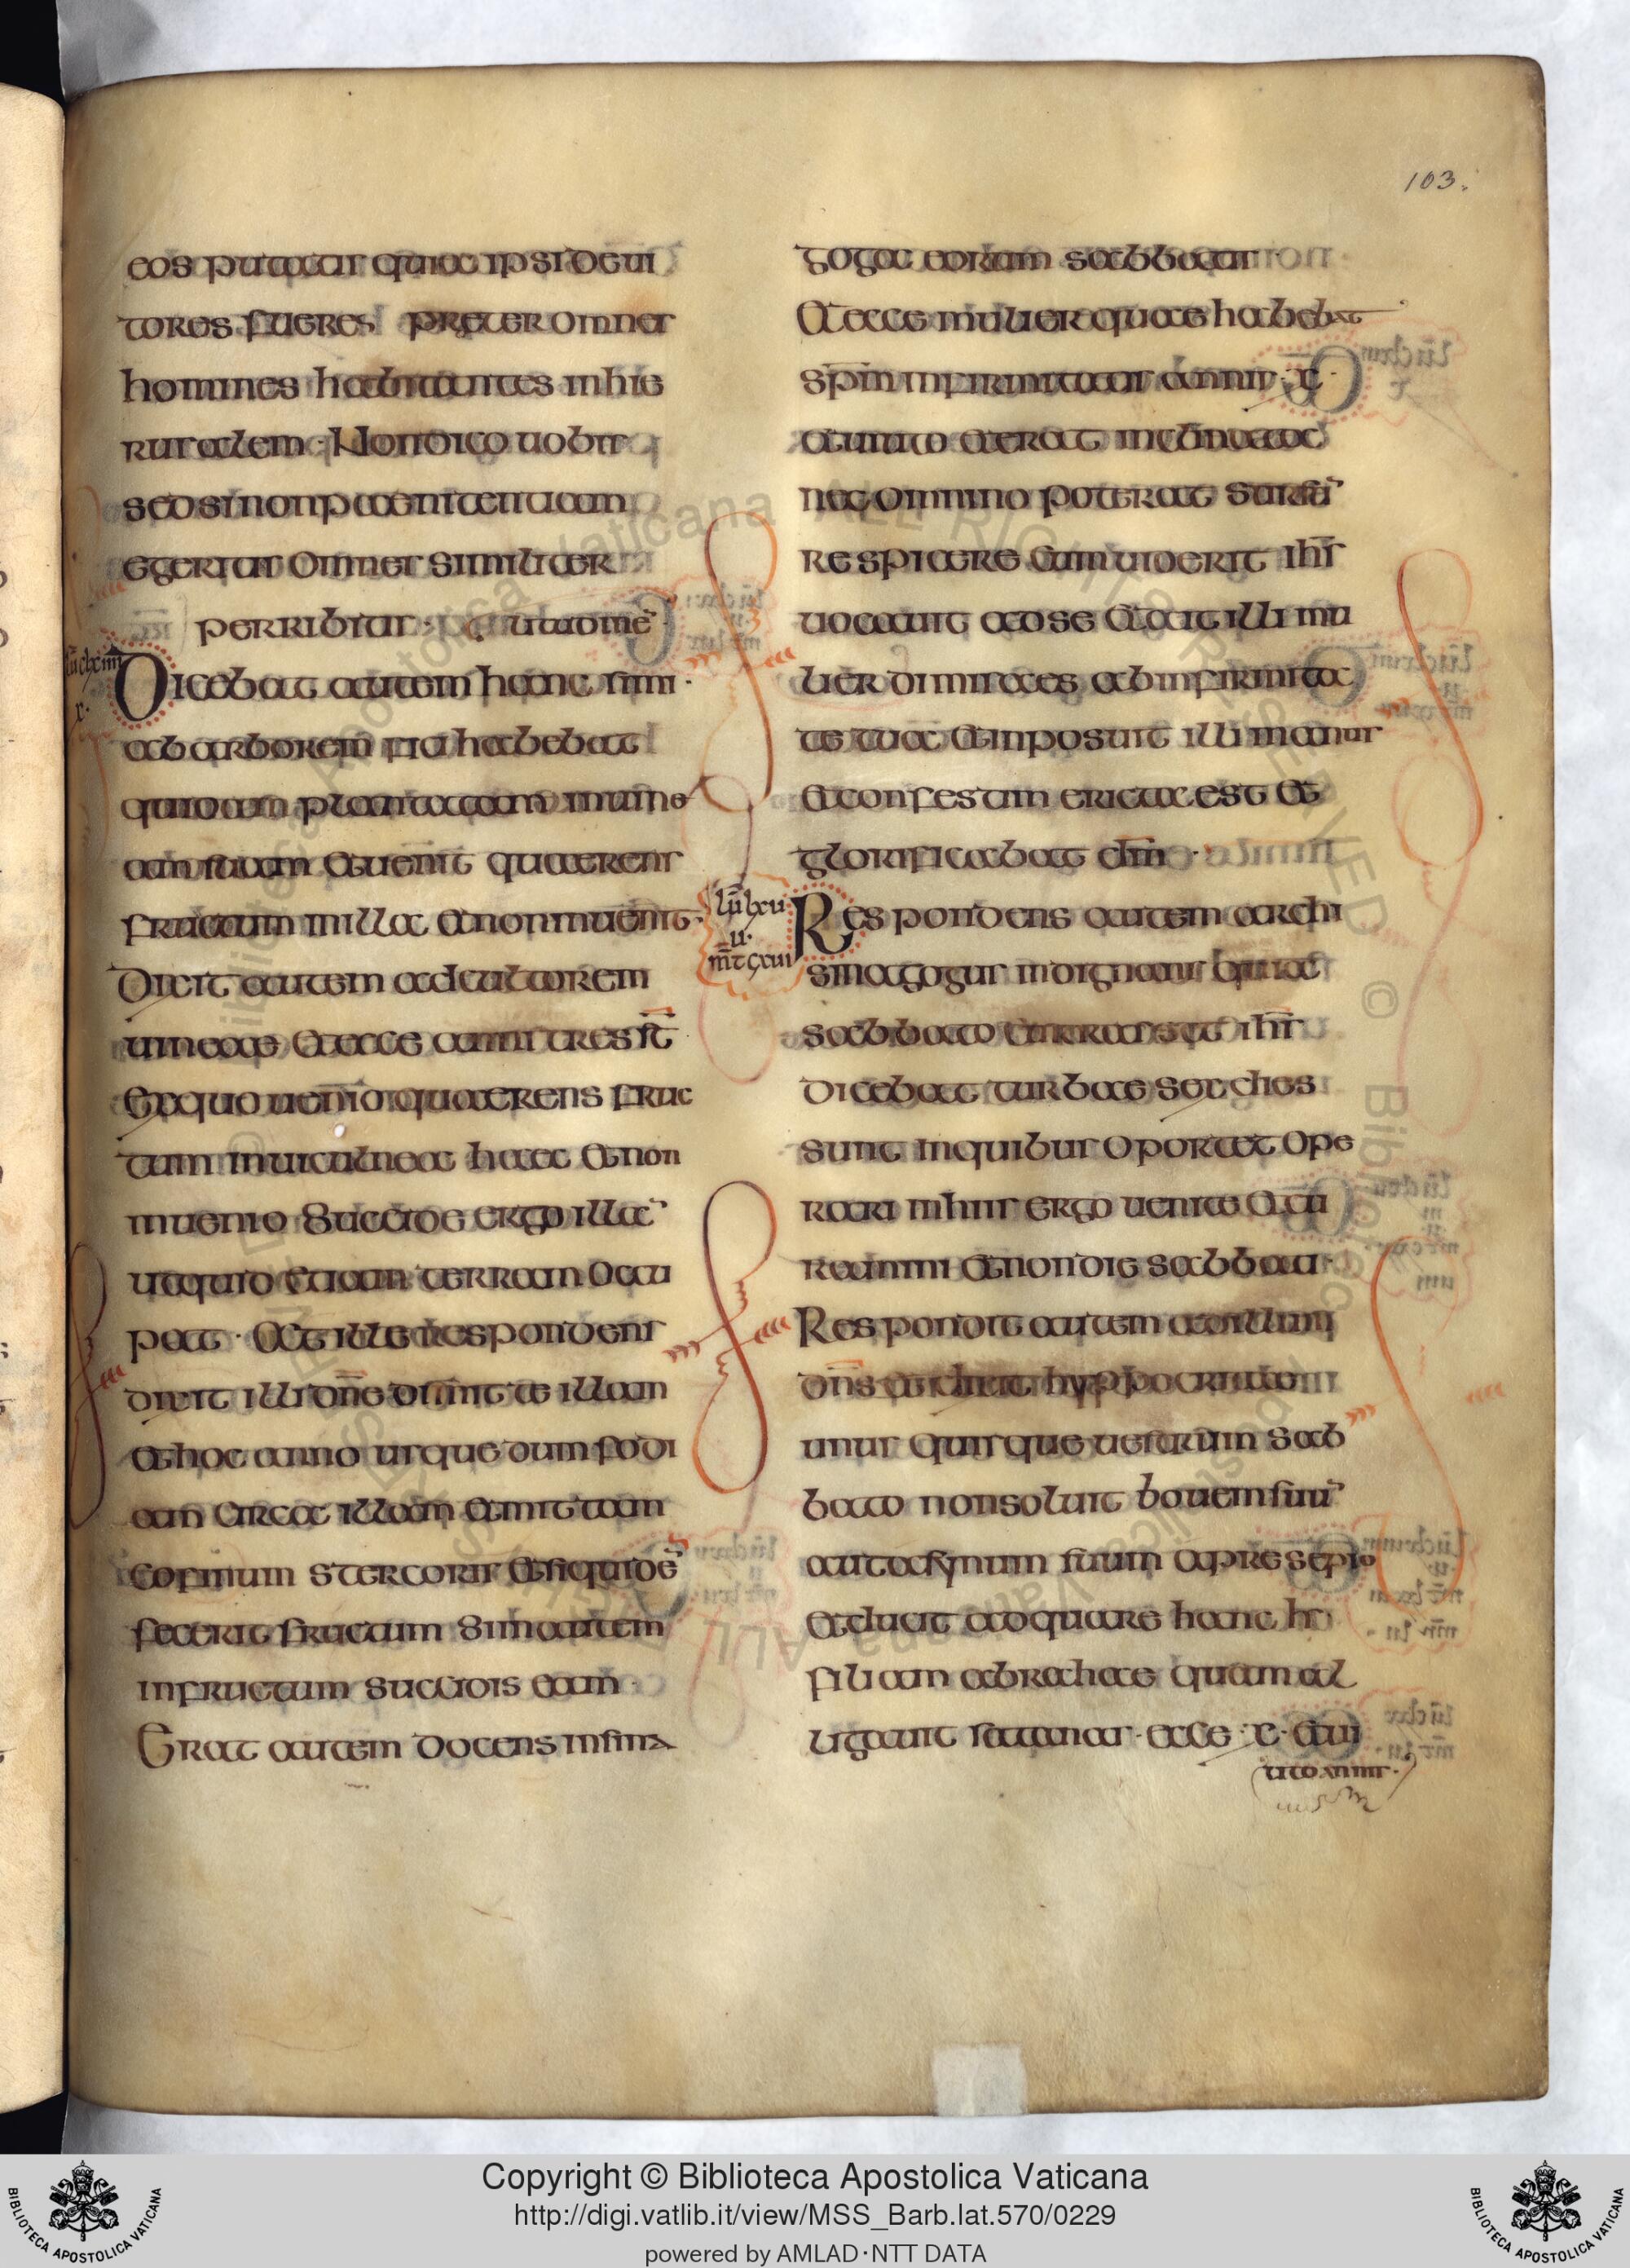 103.
eos putatis quia ipsi debi
tores fueres preter omnes
homines habitantes in hie
rusalem · Non dico uobis
sed si non paenitentiam
egeritis Omnes similiter
peribitis ·
Dicebat autem hanc simi ·
ab arborem fici habebat
quidam plantatam in uine
am suam Et uenit quaerens
fructum in illa et non inuenit ·
Dixit autem ad cultorem
uineae Et ecce anni tres st̄
Ex quo uenio quaerens fruc
tum in ficulnea haec et non
inuenio Succide ergo illā
ut quid etiam terram occu
pat · At ille respondens
dixit illi dn̄e dimitte illam
et hoc anno usque dum fodi
am circa illam et mittam
cofinum stercoris Et siquidē
fecerit fructum Sin autem
in fructum succidis eam ·
Erat autem docens in sina
goga eorum sabbatis
Et ecce mulier quae habebat
sp̄m infirmitatis annis · x ·
et uiii et erat inclinata
nec omnino poterat sursū
respicere Cum uiderit ihs̄
uocauit ad se Et ait illi mu
lier dimissa es ab infirmita
te tua Et inposuit illi manus
Et confestim erecta est Et
glorificabat dm̄ ·
lū clxu
u ·
mt̄ cxui
Respondens autem archi
sinagogus indignans quia
sabbato curasset ihs̄
dicebat turbae sex dies
sunt in quibus oportet ope
rari in his ergo uenite et cu
ramini Et non die sabbati ·
Respondit autem ad illum
dn̄s et dixit hyppocritae
unus quisque uestrum sab
bato non soluit bouem suū
aut asynum suum a presepio
Et ducit ad aquare hanc
filiam abrahae quam al
ligauit satanas · ecce · x · et ui
iito annis ·
Copyright © Biblioteca Apostolica Vaticana
http://digi.vatlib.it/view/MSS_Barb.lat.570/0229
powered by AMLAD·NTT DATA
BIBLIOTECA APOSTOLICA VATICANA
BIBLIOTECA APOSTOLICA VATICANA